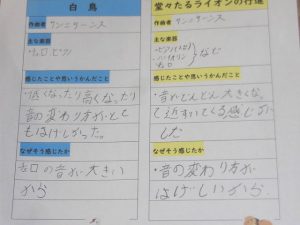 白鳥
作曲者
サンニサーンス
主な楽器
チェロ、ピアノ
感じたことや思いうかんだこと
・低くなったり高くなったり
音の変わり方がとて
もはげしかった。
なぜそう感じたか
チェロの音が大きい
から
堂々たるライオンの行進
作曲者
サンニサーンス
主な楽器
ピアノ
バイオリン
チェロ
など
感じたことや思いうかんだこと
・音がどんどん大きくな
って近づいてくる感じが
した
なぜそう感じたか
・音の変わり方が
はげしいから。